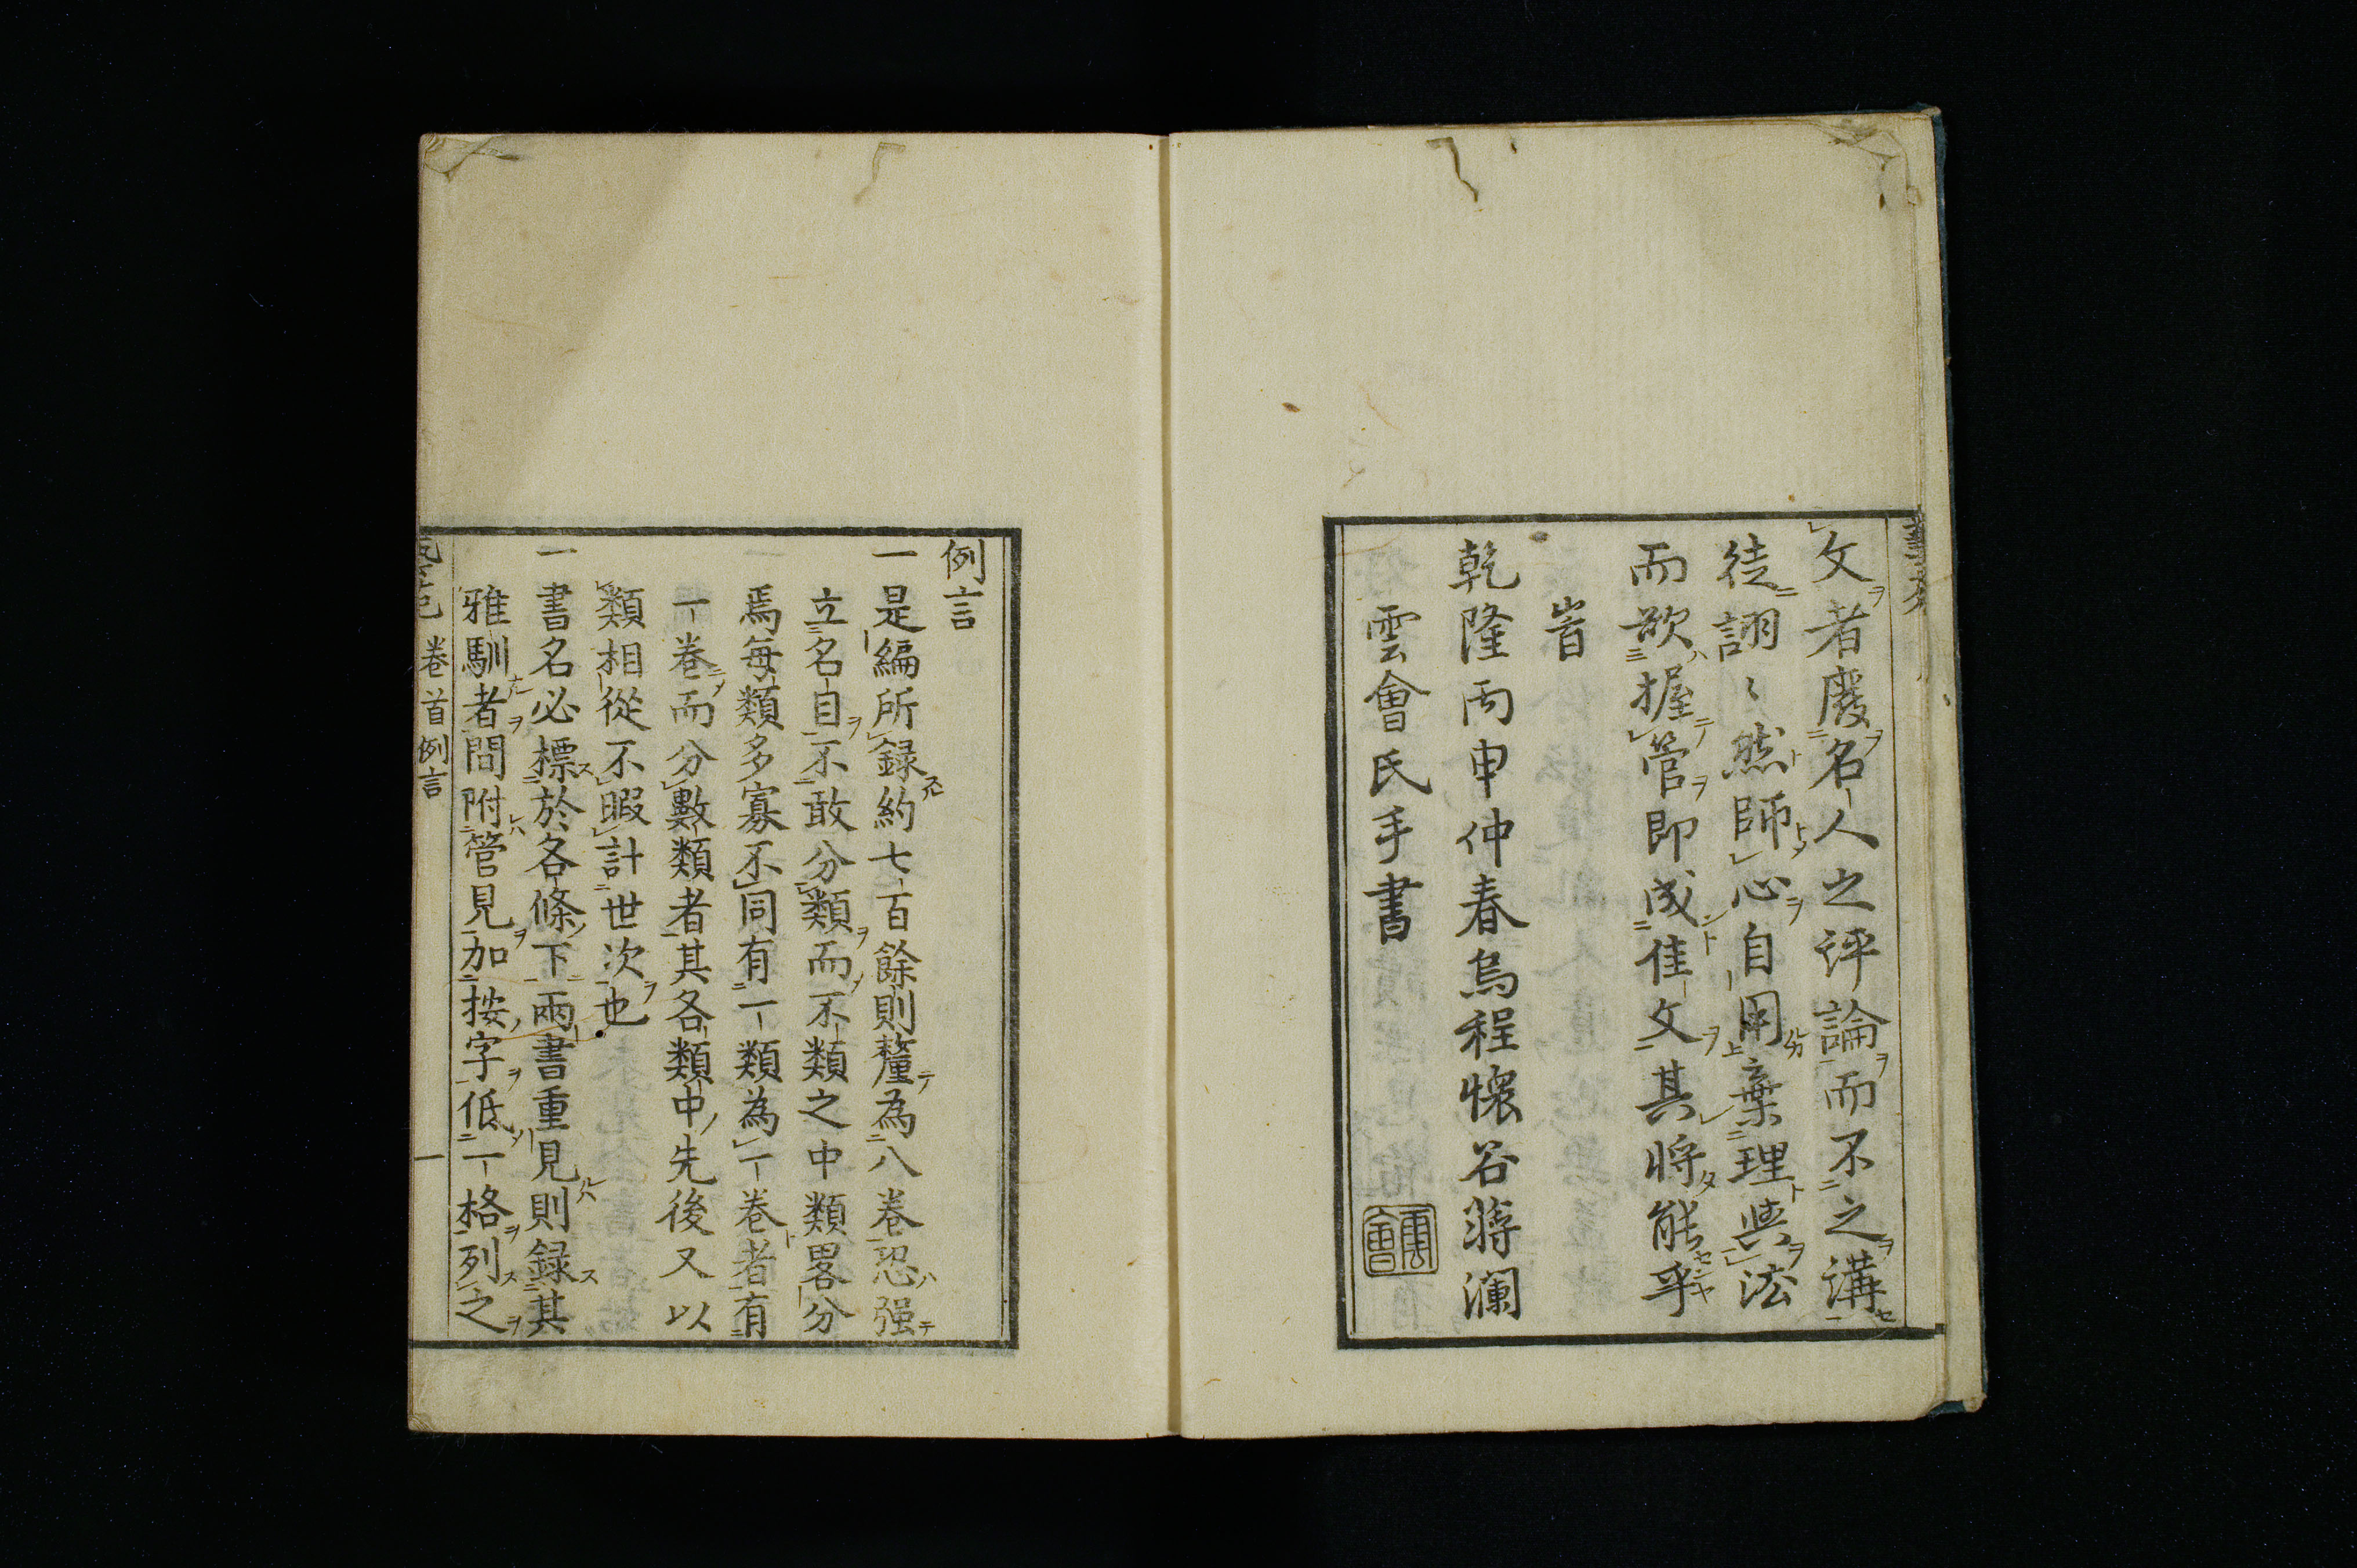 文者廢名人之評論而不之講
徒詡〻然師心自用棄理與法
而欲握管即成佳文其將能乎
旹
乾隆丙申仲春烏程懷谷蔣瀾
雲會氏手書
例言
一是編所録約七百餘則釐為八卷恐强
立名目不敢分類而不類之中類畧分
焉每類多寡不同有一類為一卷者有
一卷而分數類者其各類中先後又以
類相從不暇計世次也
一書名必標於各條下兩書重見則録其
雅馴者間附管見加按字低一格列之
卷首 例言 一